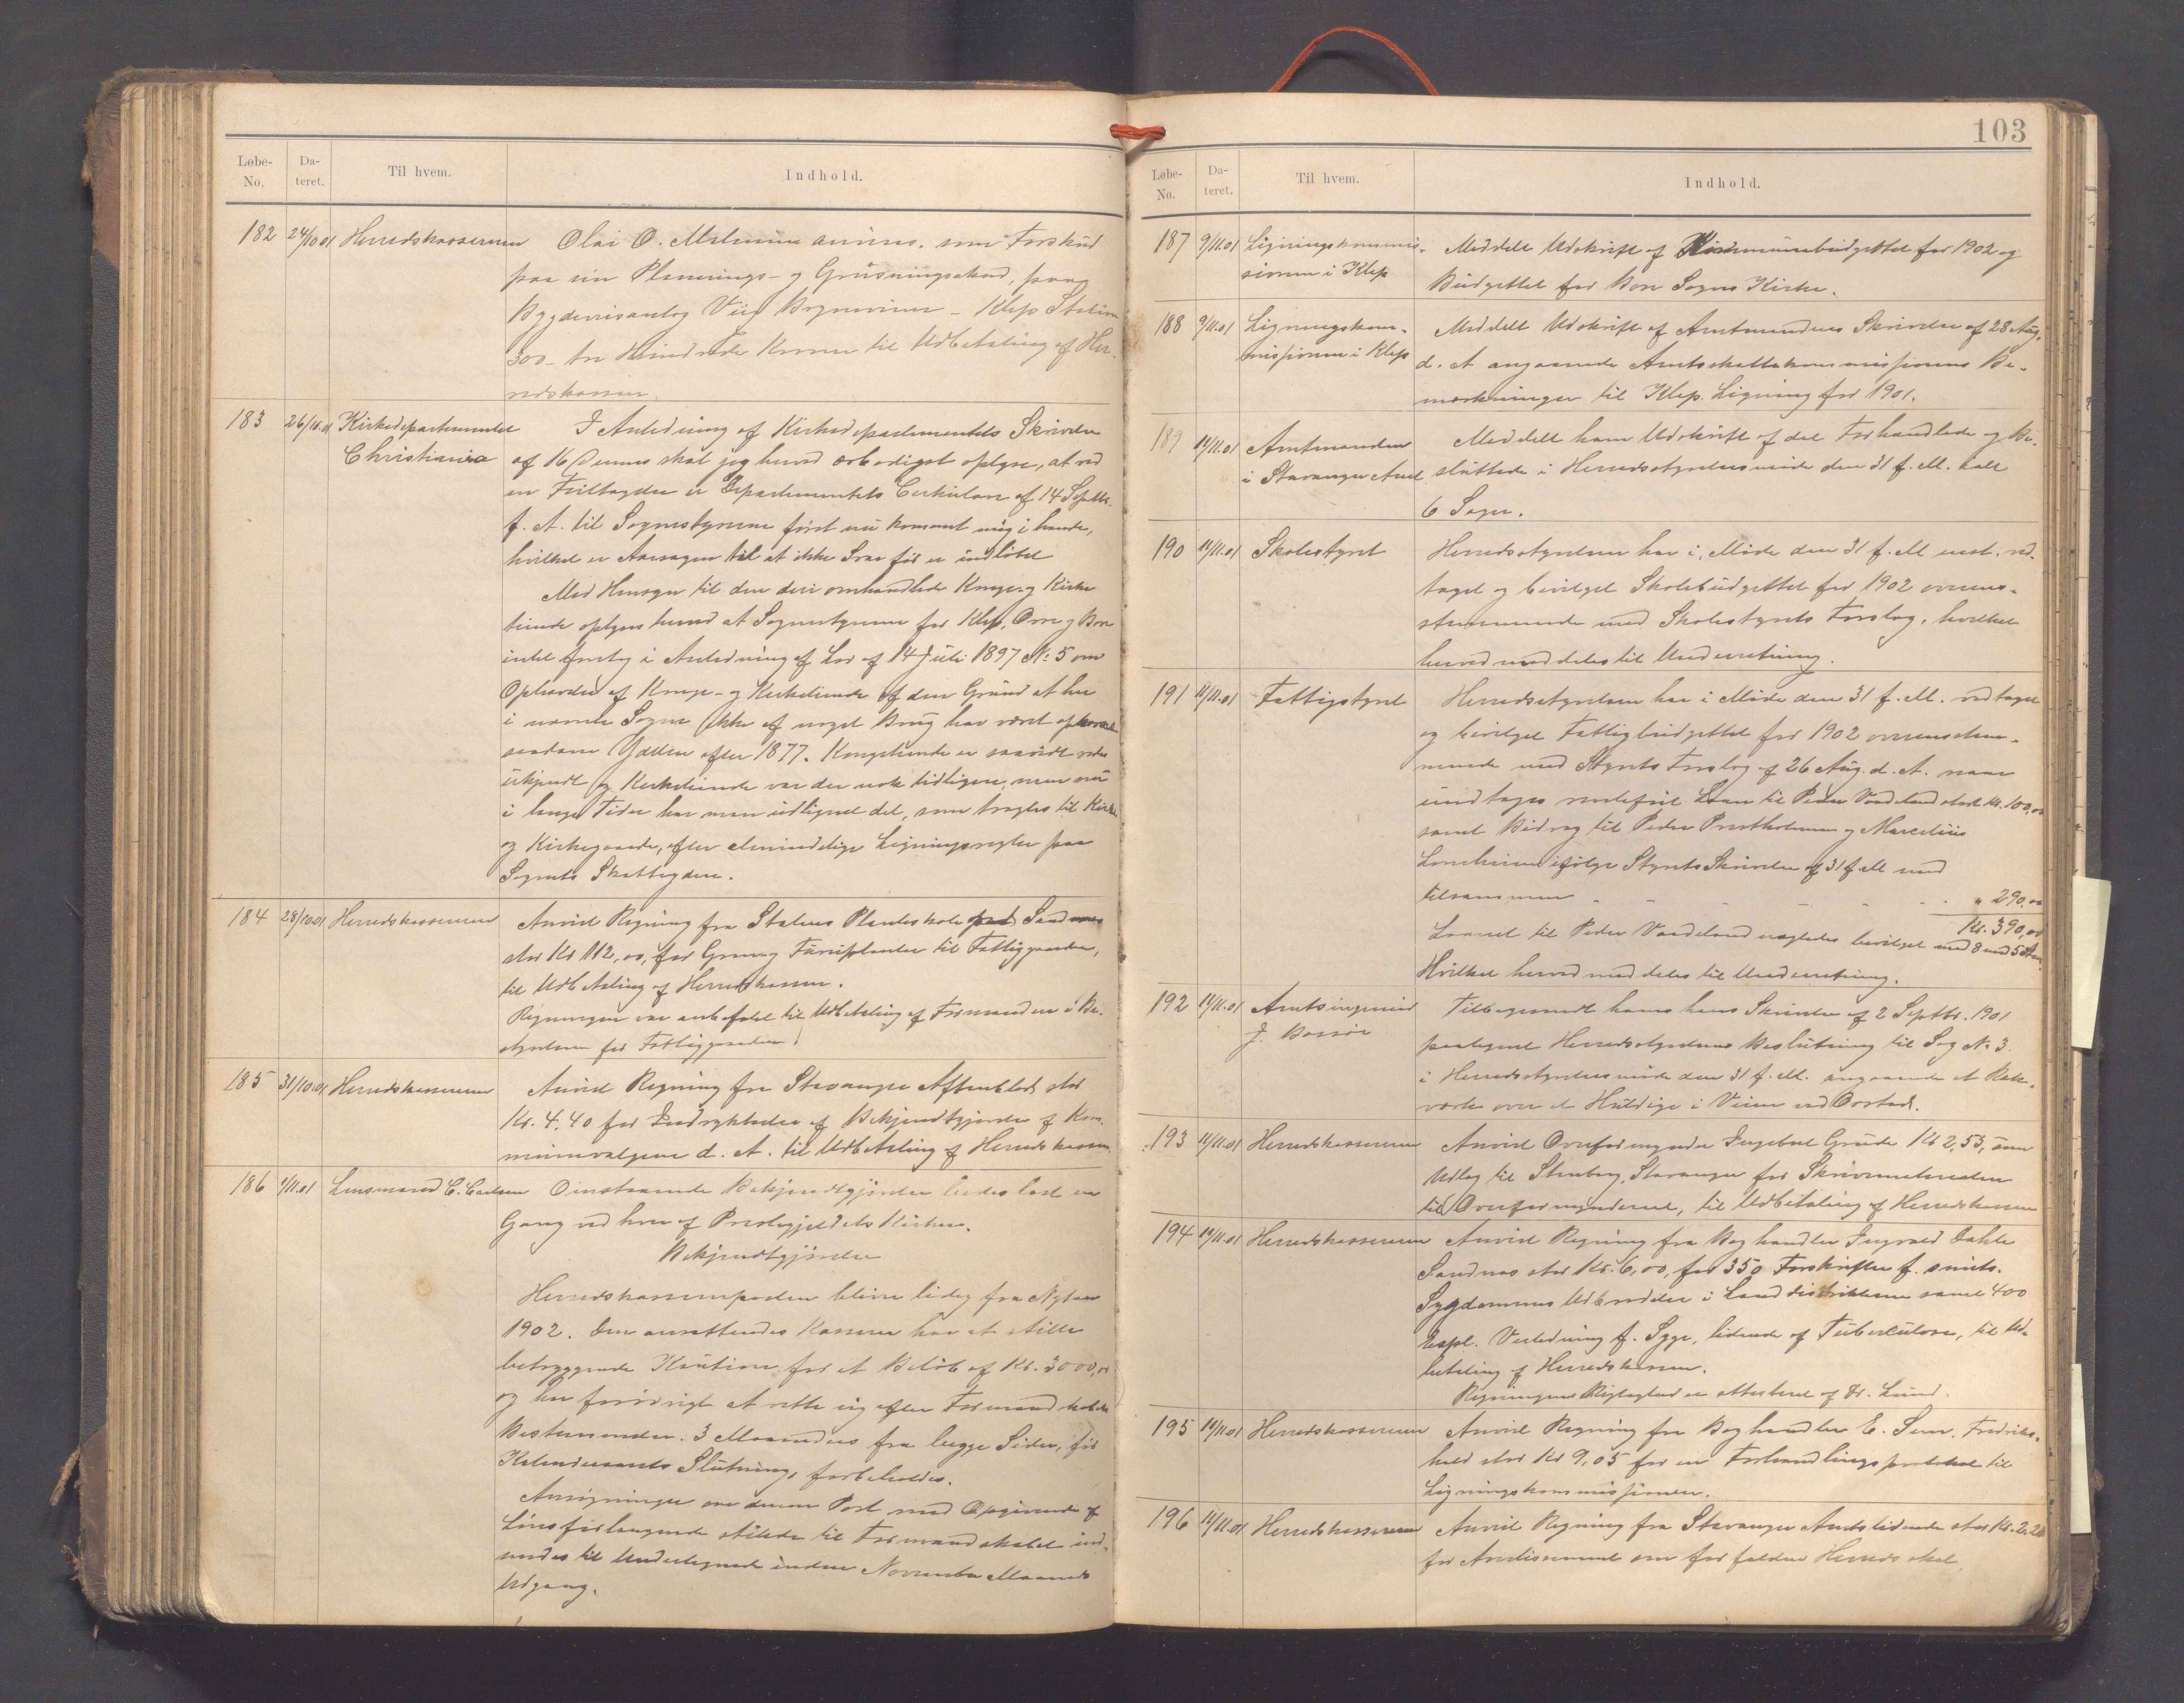 Løbe-No. Da-teret. Til hvem. Indhold.
182 24/10.01 Herredskassereren Olai O. Malmin anvises som Forskud
paa sin Planerings- og Grusningsakord, paa
Bygdeveisanlæg Vei Bryneveien - Klep Station
300 - tre Hundrede Kroner til Udbetaling af Her-
redskassen.
183 26/10.01 Kirkedepartementet I Anledning af Kirkedepartementets Skrivelse
Christiania af 16 Dennes skal jeg herved ærbødigst oplyse, at ved
en Feiltagelse er Departementets Cirkulære af 14 Septbr.
f. A. til Sognestyrerne først nu kommet mig i hænde,
hvilket er Aarsagen til at ikke Svar før er indløbet
Med Hensyn til den deri omhandlede Konge- og Kirke
tiende oplyses herved at Sognestyrerne for Klep, Orre og Bore
intet foretog i Anledning af Lov af 14 Juli 1897 No 5 om
Ophævelse af Konge- og Kirketiende af den Grund at her
i nævnte Sogne ikke af noget Brug har været opkrævet
saadan Ydelse efter 1877. Kongetiende er saavidt vides
ukjendt og Kirketiende var der nok tidligere, men nu
i lange Tider har man udlignet det, som trægtes til Kirke
og Kirkegaarde, efter almindelige Ligningsregler paa
Sognets Skatteydere.
184 28/10.01 Herredskassereren Anvist Regning fra Statens Planteskole paa Sandnes
stor Kr 112,00, for Gran og Furuplanter til Fattiggaarden,
til Udbetaling af Herredskassen.
Regningen var anbefalet til Udbetaling af Formanden i Be-
styrelsen for Fattiggaarden.
185 31/10.01 Herredskassereren Anvist Regning fra Stavanger Aftenblad stor
Kr. 4,40 for Indrykkelse af Bekjendtgjørelse af Kom-
munevalgene d. A. til Udbetaling af Herredskassen.
186 1/11.01 Lensmand C. Carlsen Omstaaende Bekjendtgjørelse bedes læst en
Gang ved hver af Præstegjeldets Kirker.
Bekjendtgjørelse
Herredskassererposten bliver ledig fra Nytaar
1902. Den ansættendes Kasserer har at stille
betryggende Kaution for et Beløb af Kr. 3000,00
og har forøvrigt at rette sig efter Formandskabets
Bestemmelser. 3 Maaneders fra begge Sider, før
Kalenderaarets Slutning, forbeholdes.
Ansøgninger om denne Post med Opgivende af
Lønsforlangende stilede til Formandskabet ind-
sendes til Undertegnede inden November Maaneds
Udgang.
103
Løbe-No. Da-teret. Til hvem. Indhold.
187 9/11.01 Ligningskommis- Meddelt Udskrift af Kommunebudgettet for 1902 og
sionen i Klep Budgettet for Bore Sogns Kirke.
188 9/11.01 Ligningskom- Meddelt Udskrift af Amtmandens Skrivelse af 28 Aug.
missionen i Klep d. A angaaende Amtsskattekommissionens Be-
mærkninger til Klep Ligning for 1901.
189 14/11.01 Amtmanden Meddelt ham Udskrift af det Forhandlede og Be-
i Stavanger Amt sluttede i Herredsstyrelsesmøde den 31 f. M. ialt
6 Sager.
190 14/11.01 Skolestyret Herredsstyrelsen har i Møde den 31 f. M enst. ved-
taget og bevilget Skolebudgettet for 1902 overens-
stemmende med Skolestyrets Forslag, hvilket
herved meddeles til Underretning.
191 14/11.01 Fattigstyret Herredsstyrelsen har i Møde den 31 f. M. vedtaget
og bevilget Fattigbudgettet for 1902 overensstem-
mende med Styrets Forslag af 26 Aug. d. A. naar
undtages rentefrit Laan til Peder Vaadeland stort Kr. 100,00
samt Bidrag til Peder Præstholmen og Marcelius
ifølge Styrets Skrivelse af 31 f. M med
tilsammen " 290,00
Kr. 390,00
Laanet til Peder Vaadeland nægtedes bevilget med 8 mod 5 St.
Hvilket herved meddeles til Underretning.
192 14/11.01 Amtsingeniør Tilbagesendt ham hans Skrivelse af 2 Septbr. 1901
J. Barsøe paategnet Herredsstyrelsens Beslutning til Sag No 3.
i Herredsstyrelsesmøde den 31 f. M. angaaende et Rek-
værk over et i Veien ved Orstad.
193 14/11.01 Herredskassereren Anvist Overformynder Ingebret Grude Kr 2,53, som
Udlæg til Stenberg, Stavanger for Skrivematerialer
til Overformynderiet, til Udbetaling af Herredskassen
194 14/11.01 Herredskassereren Anvist Regning fra Boghandler Ingvald Dahle
Sandnæs stor Kr. 6,00, for 350 Forskrifter f. smits.
Sygdommes Udbredelse i Landdistrikterne samt 400
Expl. Veiledning f. Syge, lidende af Tuberculose, til Ud-
betaling af Herredskassen.
Regningens Rigtighed er attesteret af Dr. Lund.
195 14/11.01 Herredskassereren Anvist Regning fra Boghandler E. Sem, Fredriks-
hald stor Kr 9,05 for en Forhandlingsprotokol til
Ligningskommissionen.
196 14/11.01 Herredskassereren Anvist Regning fra Stavanger Amtstidende stor Kr. 2,20
for Avertissement om forfalden Herredsskat.